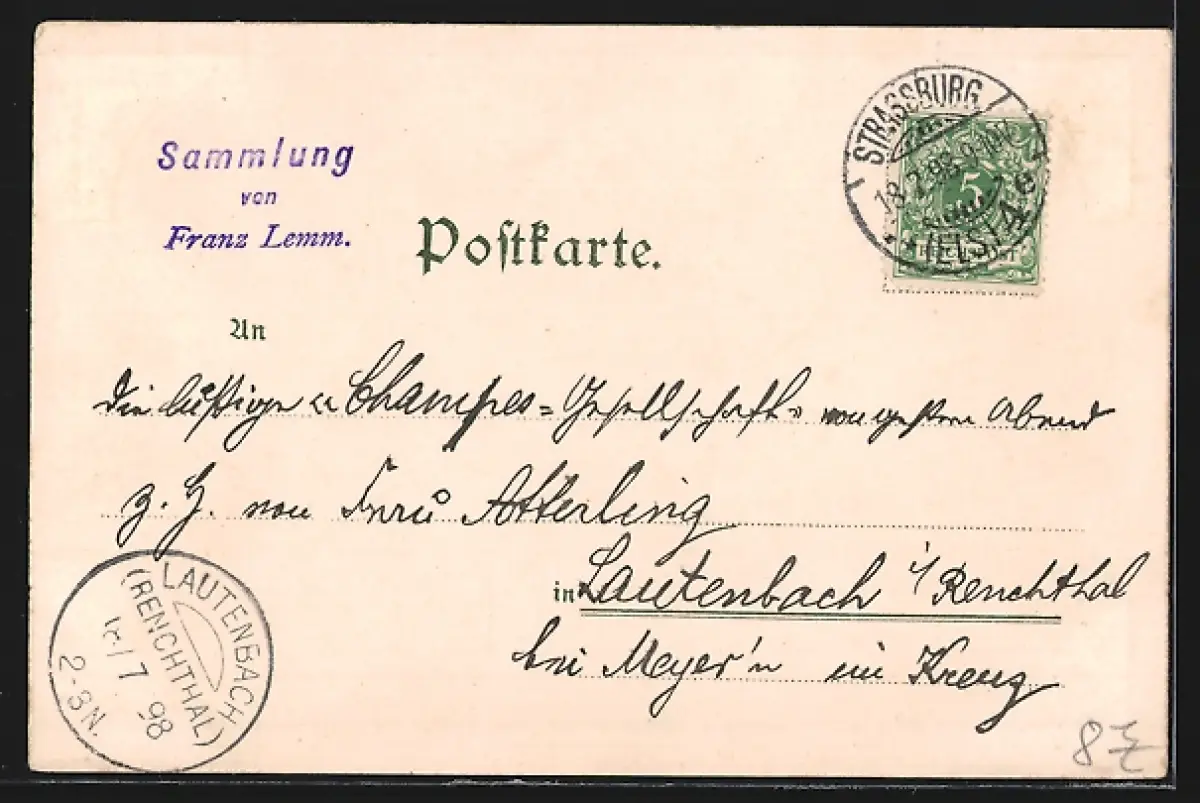 Sammlung
von
Franz Lemm.
Postkarte.
STRASSBURG
18.7.98.
5
(ELS) 4e
An
Die lustige „Champes-Gesellschaft“ von gestern Abend
z. H. von Frau Atterling
in Lautenbach i/Renchthal
bei Meyer'n im Kreuz
LAUTENBACH
(RENCHTHAL)
18/7 98
2-3N.